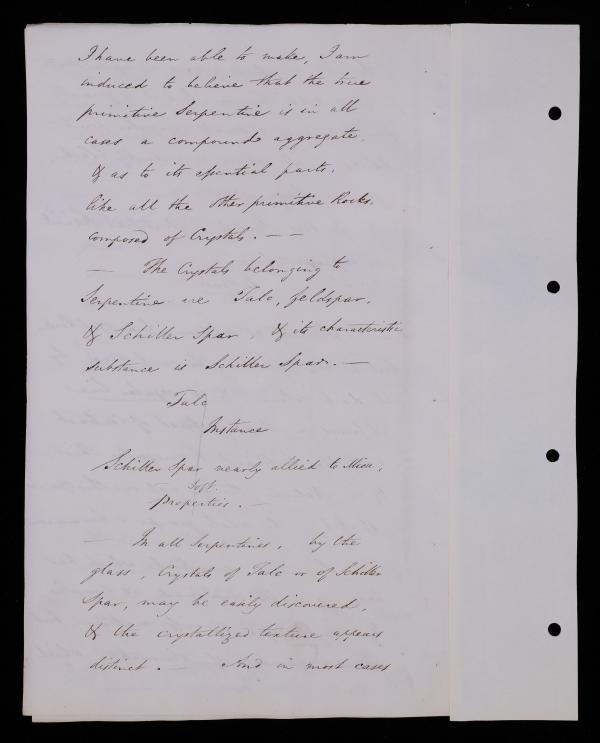 I have been able to make, I am
induced to believe that the true
primitive Serpentine is in all
cases a compound aggregate.
& as to its essential parts,
like all the other primitive Rocks.
composed of Crystals. — —
— The Crystals belonging to
Serpentine are Talc, feldspar,
& Schiller Spar, & its characteristic
substance is Schiller Spar. —
Talc
Instance
Schiller Spar nearly allied to Mica,
Soft.
Properties. —
— In all Serpentines, by the
glass, Crystals of Talc or of Schiller
Spar, may be easily discovered,
& the crystallized texture appears
distinct. — And in most cases